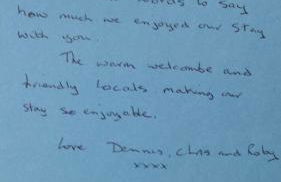 words to say
how much we enjoyed our stay
with you.
The warm welcombe and
friendly locals making our
stay so enjoyable.
Love Dennis, Chris and Roby
xxxx